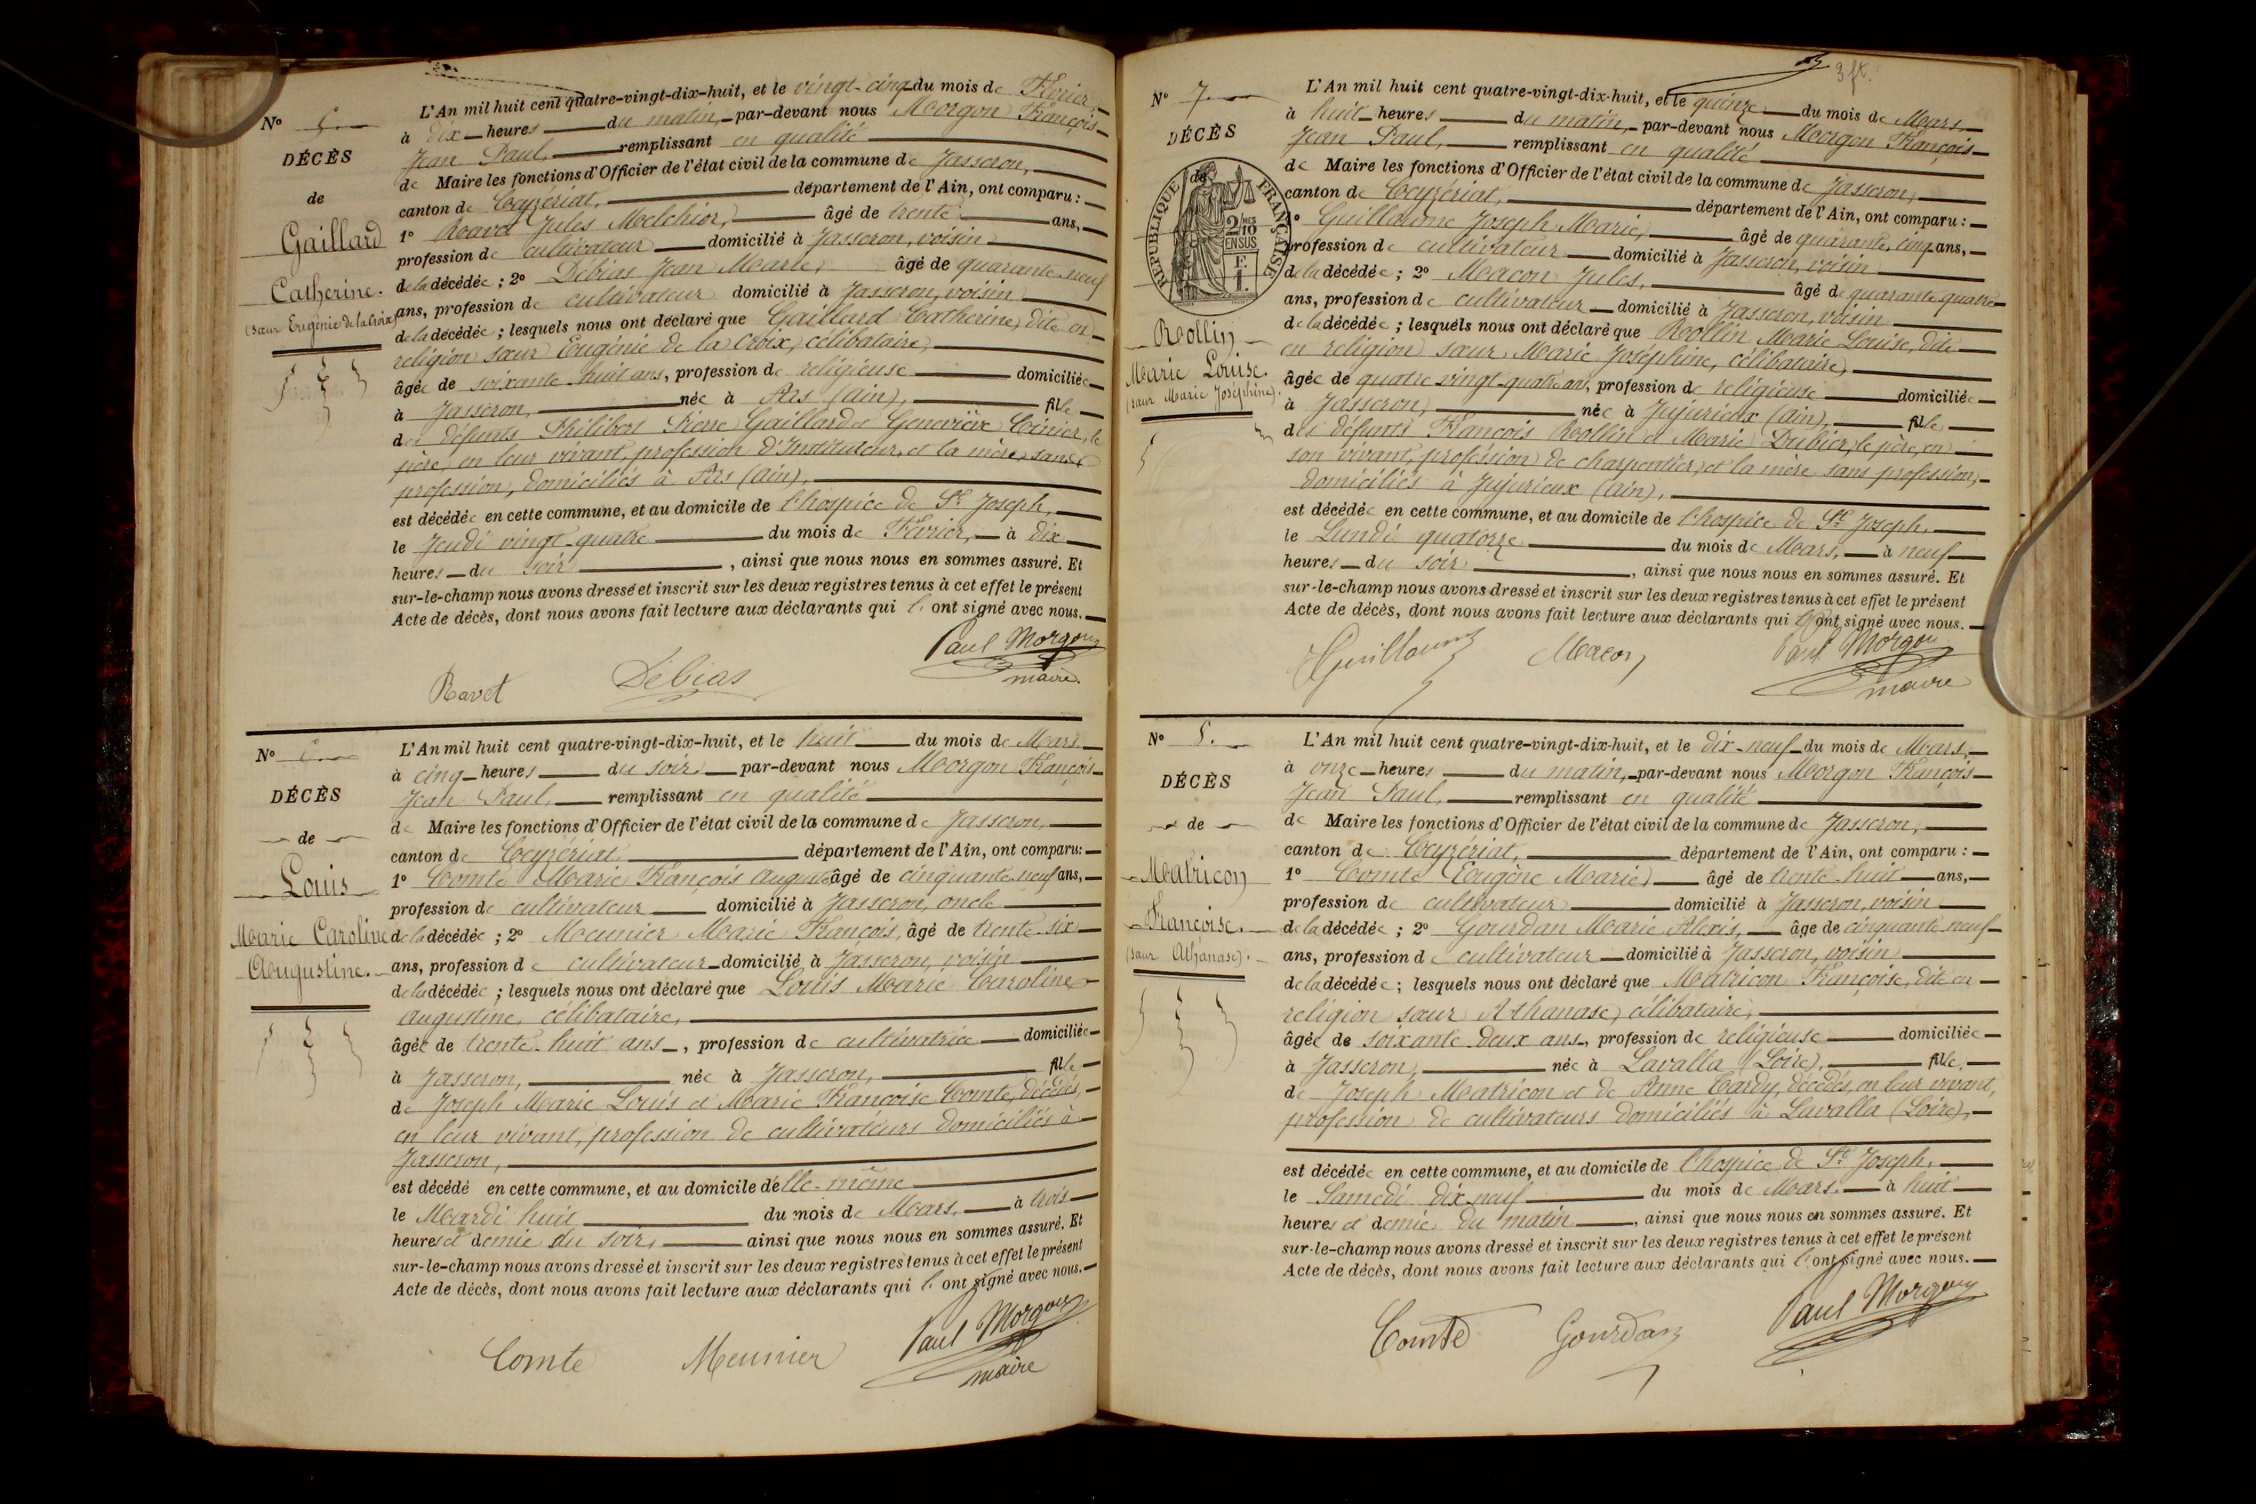 N° 5.
DÉCÈS
de
Gaillard
Catherine.
(sœur Eugénie de la Croix)
L'An mil huit cent quatre-vingt-dix-huit, et le vingt-cinq du mois de Février,
à dix heures du matin, par-devant nous Morgon François
Jean Paul, remplissant en qualité
de Maire les fonctions d'Officier de l'état civil de la commune de Jasseron,
canton de Ceyzériat, département de l'Ain, ont comparu :
1° Ravet Jules Melchior, âgé de trente ans,
profession de cultivateur domicilié à Jasseron, voisin
de la décédée ; 2° Débias Jean Marie, âgé de quarante-neuf
ans, profession de cultivateur domicilié à Jasseron, voisin
de la décédée ; lesquels nous ont déclaré que Gaillard Catherine, dite en
religion sœur Eugénie de la Croix, célibataire,
âgée de soixante-huit ans, profession de religieuse domiciliée
à Jasseron, née à Ars (ain), fille
des défunts Philibert Pierre Gaillard et Geneviève Cinier, le
père, en leur vivant, profession d'Instituteur, et la mère, sans
profession, domiciliés à Ars (ain),
est décédée en cette commune, et au domicile de l'hospice de St Joseph,
le Jeudi vingt-quatre du mois de Février, à dix
heures du soir, ainsi que nous nous en sommes assuré. Et
sur-le-champ nous avons dressé et inscrit sur les deux registres tenus à cet effet le présent
Acte de décès, dont nous avons fait lecture aux déclarants qui l'ont signé avec nous.
Paul Morgon
maire
Ravet Débias
N° 6.
DÉCÈS
de
Louis
Marie Caroline
Augustine.
L'An mil huit cent quatre-vingt-dix-huit, et le huit du mois de Mars
à cinq heures du soir, par-devant nous Morgon François
Jean Paul, remplissant en qualité
de Maire les fonctions d'Officier de l'état civil de la commune de Jasseron,
canton de Ceyzériat, département de l'Ain, ont comparu :
1° Comte Marie François Auguste âgé de cinquante-neuf ans,
profession de cultivateur domicilié à Jasseron, oncle
de la décédée ; 2° Meunier Marie François, âgé de trente-six
ans, profession de cultivateur domicilié à Jasseron, voisin
de la décédée ; lesquels nous ont déclaré que Louis Marie Caroline
Augustine, célibataire,
âgée de trente-huit ans, profession de cultivatrice domiciliée
à Jasseron, née à Jasseron, fille
de Joseph Marie Louis et Marie Françoise Comte, décédés,
en leur vivant, profession de cultivateurs domiciliés à
Jasseron,
est décédé en cette commune, et au domicile d'elle-même
le Mardi huit du mois de Mars, à trois
heures et demie du soir, ainsi que nous nous en sommes assuré. Et
sur-le-champ nous avons dressé et inscrit sur les deux registres tenus à cet effet le présent
Acte de décès, dont nous avons fait lecture aux déclarants qui l'ont signé avec nous.
Comte Meunier Paul Morgon
maire
3 ft.
N° 7.
DÉCÈS
de
RÉPUBLIQUE FRANÇAISE
2/10 MES
EN SUS
Rollin
Marie Louise.
(sœur Marie Joséphine).
L'An mil huit cent quatre-vingt-dix-huit, et le quinze du mois de Mars
à huit heures du matin, par-devant nous Morgon François
Jean Paul, remplissant en qualité
de Maire les fonctions d'Officier de l'état civil de la commune de Jasseron,
canton de Ceyzériat, département de l'Ain, ont comparu :
1° Guillaume Joseph Marie, âgé de quarante-cinq ans,
profession de cultivateur domicilié à Jasseron, voisin
de la décédée ; 2° Macon Jules, âgé de quarante-quatre
ans, profession de cultivateur domicilié à Jasseron, voisin
de la décédée ; lesquels nous ont déclaré que Rollin Marie Louise, dite
en religion sœur Marie Joséphine, célibataire,
âgée de quatre-vingt-quatre ans, profession de religieuse domiciliée
à Jasseron, née à Jujurieux (ain), fille
des défunts François Rollin et Marie Dubier, le père, en
son vivant, profession de charpentier, et la mère sans profession,
domiciliés à Jujurieux (ain),
est décédée en cette commune, et au domicile de l'hospice de St Joseph,
le Lundi quatorze du mois de Mars, à neuf
heures du soir, ainsi que nous nous en sommes assuré. Et
sur-le-champ nous avons dressé et inscrit sur les deux registres tenus à cet effet le présent
Acte de décès, dont nous avons fait lecture aux déclarants qui l'ont signé avec nous.
Guillaume Macon Paul Morgon
maire
N° 8.
DÉCÈS
de
Matricon
Françoise.
(sœur Athanase).
L'An mil huit cent quatre-vingt-dix-huit, et le dix-neuf du mois de Mars,
à onze heures du matin, par-devant nous Morgon François
Jean Paul, remplissant en qualité
de Maire les fonctions d'Officier de l'état civil de la commune de Jasseron,
canton de Ceyzériat, département de l'Ain, ont comparu :
1° Comte Eugène Marie, âgé de trente-huit ans,
profession de cultivateur domicilié à Jasseron, voisin
de la décédée ; 2° Gourdan Marie Alexis, âge de cinquante-neuf
ans, profession de cultivateur domicilié à Jasseron, voisin
de la décédée ; lesquels nous ont déclaré que Matricon Françoise, dite en
religion sœur Athanase, célibataire,
âgée de soixante-deux ans, profession de religieuse domiciliée
à Jasseron, née à Lavalla (Loire), fille
de Joseph Matricon et de Anne Tardy, décédés, en leur vivant,
profession de cultivateurs domiciliés à Lavalla (Loire),
est décédée en cette commune, et au domicile de l'hospice de St Joseph,
le Samedi dix-neuf du mois de Mars, à huit
heures et demie du matin, ainsi que nous nous en sommes assuré. Et
sur-le-champ nous avons dressé et inscrit sur les deux registres tenus à cet effet le présent
Acte de décès, dont nous avons fait lecture aux déclarants qui l'ont signé avec nous.
Comte Gourdan Paul Morgon